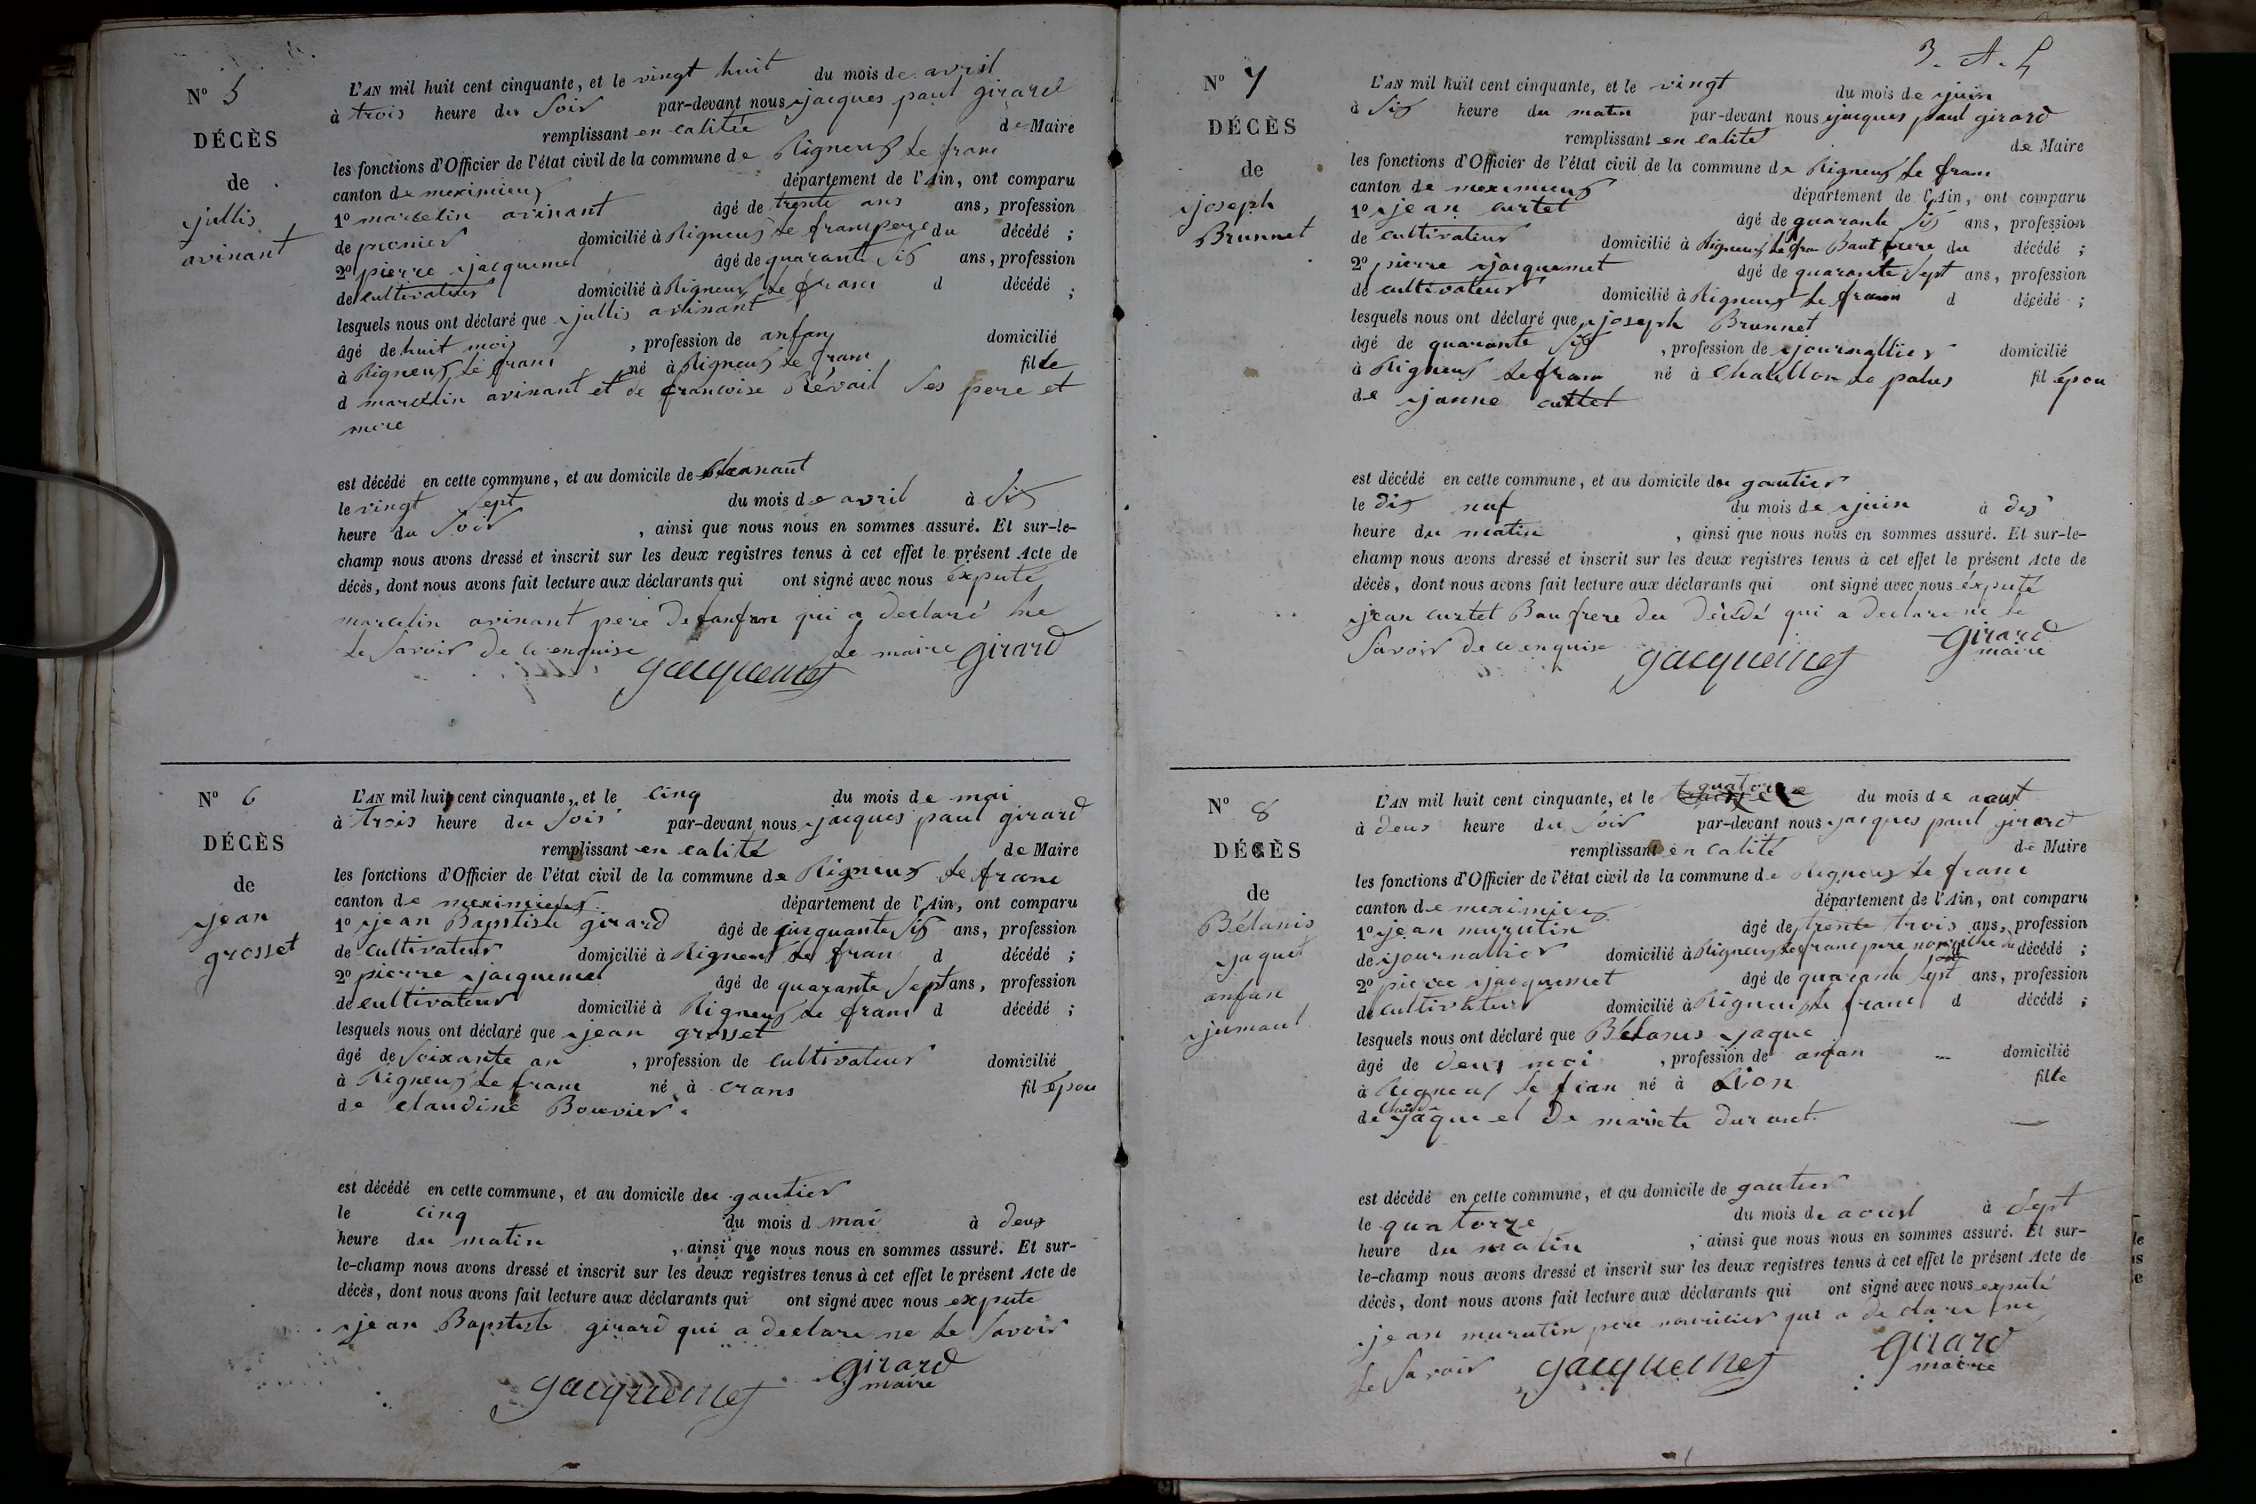 N° 5
DÉCÈS
de
jullis
avinant
L'AN mil huit cent cinquante, et le vingt huit du mois de avril
à trois heure du Soir par-devant nous jacques paul girard
remplissant en calitée de Maire
les fonctions d'Officier de l'état civil de la commune de Rigneux le franc
canton de meximieux département de l'Ain, ont comparu
1° marcelin avinant âgé de trente ans ans, profession
de domicilié à Rigneux le franc pere du décédé ;
2° pierre jacquemet âgé de quarante six ans, profession
de cultivateur domicilié à Rigneux le franc d décédé ;
lesquels nous ont déclaré que jullis avinant
âgé de huit mois , profession de anfan domicilié
à Rigneux le franc né à Rigneux le franc fil de
d marcelin avinant et de francoise Révail Ses pere et
mere
est décédé en cette commune, et au domicile de
le vingt Sept du mois de avril à Six
heure du Soir , ainsi que nous nous en sommes assuré. Et sur-le-
champ nous avons dressé et inscrit sur les deux registres tenus à cet effet le présent Acte de
décès, dont nous avons fait lecture aux déclarants qui ont signé avec nous exputé
marcelin avinant pere de lanfan qui a declaré ne
le Savoir de ce enquise le maire girard
jacquemet
N° 6
DÉCÈS
de
jean
grosset
L'AN mil huit cent cinquante, et le cinq du mois de mai
à trois heure du Soir par-devant nous jacques paul girard
remplissant en calité de Maire
les fonctions d'Officier de l'état civil de la commune de Rigneux le franc
canton de meximieux département de l'Ain, ont comparu
1° jean Baptiste girard âgé de cinquante six ans, profession
de cultivateur domicilié à Rigneux le franc d décédé ;
2° pierre jacquemet âgé de quarante Sept ans, profession
de cultivateur domicilié à Rigneux le franc d décédé ;
lesquels nous ont déclaré que jean grosset
âgé de Soixante an , profession de cultivateur domicilié
à Rigneux le franc né à crans fil épou
de claudine Bouvier.
est décédé en cette commune, et au domicile du gautier
le cinq du mois d mai à deux
heure du matin , ainsi que nous nous en sommes assuré. Et sur-
le-champ nous avons dressé et inscrit sur les deux registres tenus à cet effet le présent Acte de
décès, dont nous avons fait lecture aux déclarants qui ont signé avec nous expute
jean Baptiste girard qui a declare ne le Savoir
jacquemet girard
maire
3. A. L
N° 7
DÉCÈS
de
joseph
Brunnet
L'AN mil huit cent cinquante, et le vingt du mois de juin
à Six heure du matin par-devant nous jacques paul girard
remplissant en calité de Maire
les fonctions d'Officier de l'état civil de la commune de Rigneux le franc
canton de meximieux département de l'Ain, ont comparu
1° jean curtet âgé de quarante Six ans, profession
de cultivateur domicilié à Rigneux le fran Baut frere du décédé ;
2° pierre jacquemet âgé de quarante Sept ans, profession
de cultivateur domicilié à Rigneux le franc d décédé ;
lesquels nous ont déclaré que joseph Brunnet
âgé de quarante Six , profession de journallier domicilié
à Rigneux le franc né à Chatillon la palus fil épou
de janne curtet
est décédé en cette commune, et au domicile du gautier
le dix nuf du mois de juin à dix
heure du matin , ainsi que nous nous en sommes assuré. Et sur-le-
champ nous avons dressé et inscrit sur les deux registres tenus à cet effet le présent Acte de
décès, dont nous avons fait lecture aux déclarants qui ont signé avec nous exputé
jean curtet Baufrere du décédé qui a declare ne le
Savoir de ce enquise girard
jacquemet maire
N° 8
DÉCÈS
de
Bélanis
jaque
anfan
jumaul
L'AN mil huit cent cinquante, et le quatorze du mois de aout
à deux heure du Soir par-devant nous jacques paul girard
remplissant en calité de Maire
les fonctions d'Officier de l'état civil de la commune de Rigneux le franc
canton de meximieux département de l'Ain, ont comparu
1° jean murutin âgé de trente trois ans, profession
de journallier domicilié à Rigneux le franc pere du décédé ;
2° pierre jacquemet âgé de quarante Sept ans, profession
de cultivateur domicilié à Rigneux le franc d décédé ;
lesquels nous ont déclaré que Bélanis jaque
âgé de deux moi , profession de anfan domicilié
à Rigneux le fran né à Lion fil de
de jaque et de mariete durant.
est décédé en cette commune, et au domicile de gautier
le quatorze du mois de aoust à Sept
heure du matin , ainsi que nous nous en sommes assuré. Et sur-
le-champ nous avons dressé et inscrit sur les deux registres tenus à cet effet le présent Acte de
décès, dont nous avons fait lecture aux déclarants qui ont signé avec nous exputé
jean murutin pere nouricier qui a declare ne
le Savoir jacquemet girard
maire